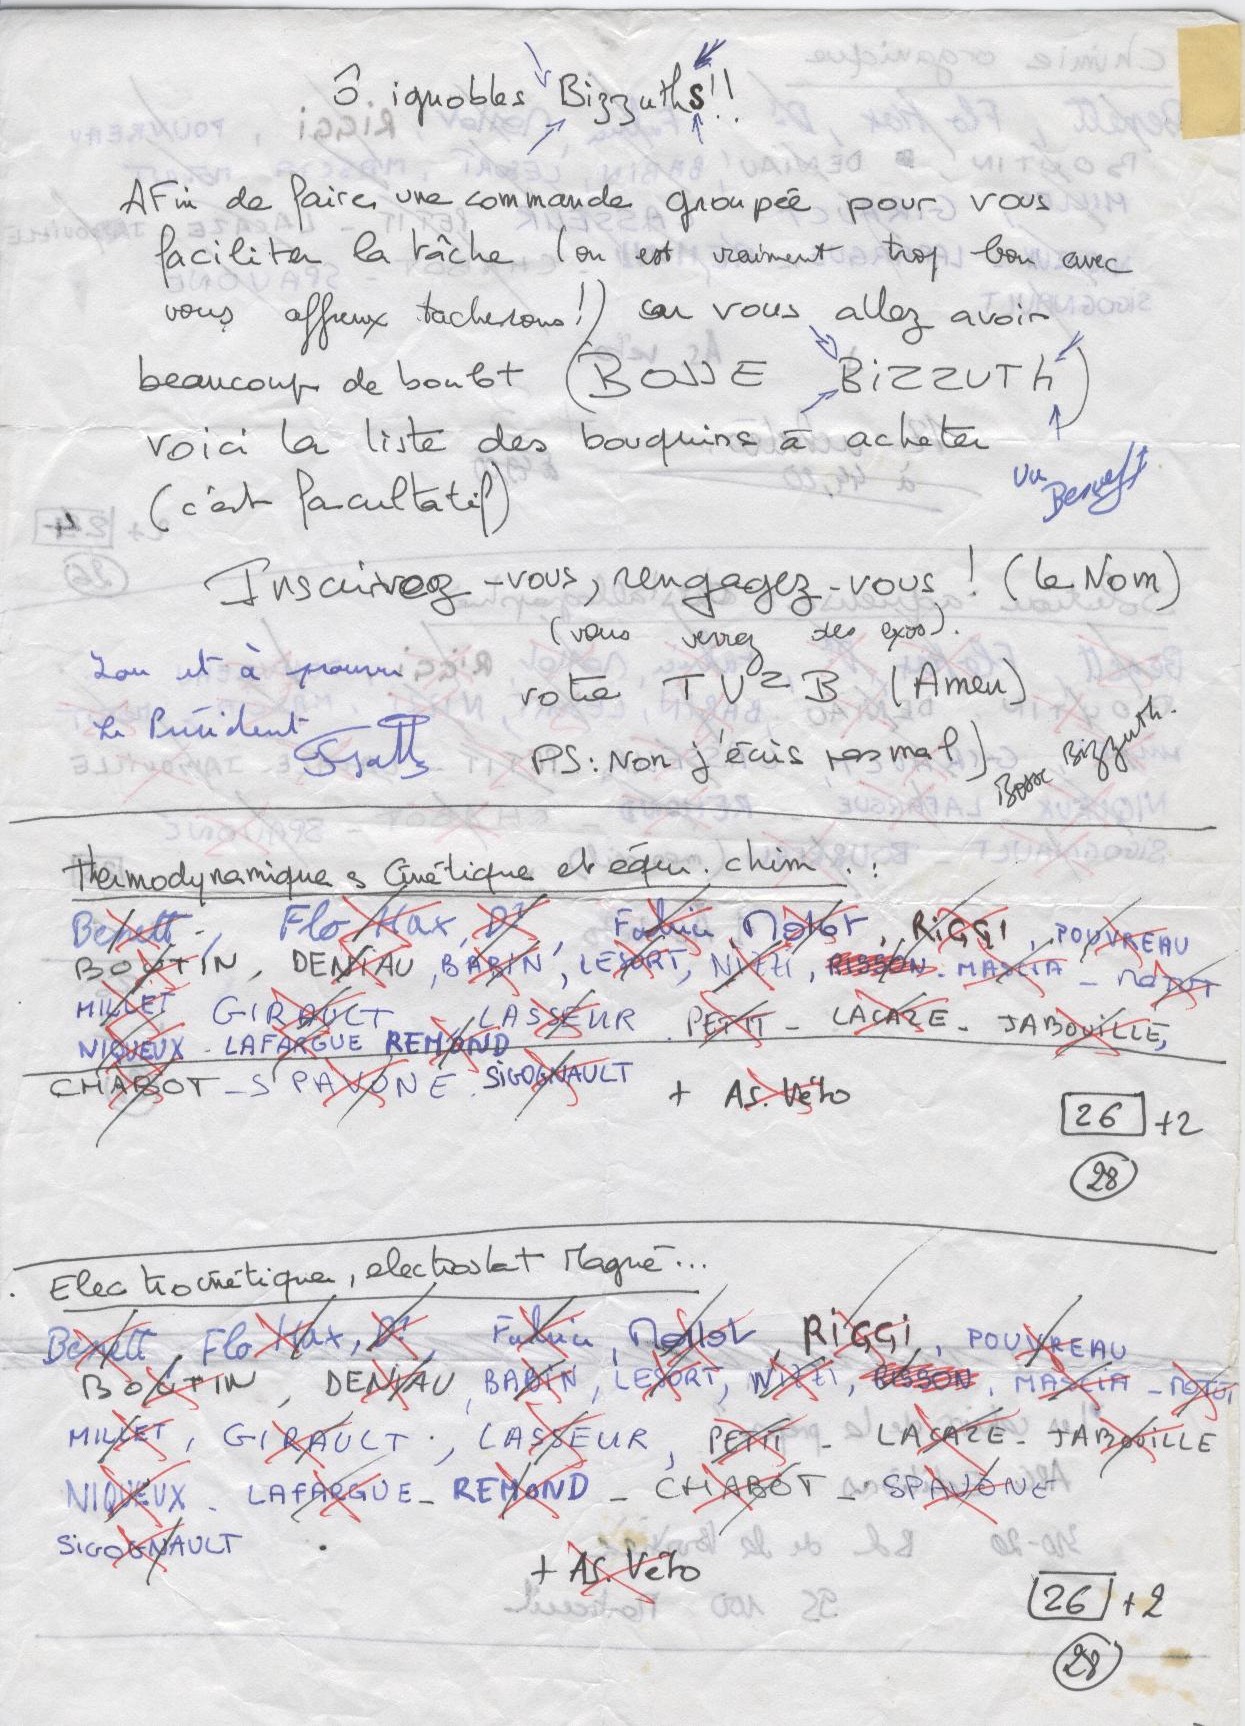 Ô ignobles Bizzuths!!
AFin de faire une commande groupée pour vous
faciliter la tâche (on est vraiment trop bon avec
vous affreux tacherons!) car vous allez avoir
beaucoup de boulot (BOSSE BiZZUTh)
voici la liste des bouquins à acheter
(c'est facultatif)
vu
Inscrivez-vous, rengagez-vous! (le Nom)
(vous verrez des exos).
Lou et à pourri
votre TVZB (Amen)
Le Président
PS: Non j'écris normal)
Bosse Bizzuth.
Thermodynamique s Cinétique et équ. chim. :
Benett, Flo Max, D1, Fabrice, Mollot, RiGGi, POUVREAU
BOUTIN, DENIAU, BABIN, LESORT, NIZZI, BISSON. MASCIA - NOTOT
MILLET GIRAULT LASSEUR PETIT - LACAZE - JABOUILLE,
NIQUEUX - LAFARGUE REMOND
CHABOT - SPAVONE. SiGOGNAULT + AS. Véto
26 +2
28
Electrocinétique, electrostat Magné...
Benett, Flo Max, D1, Fabrice, Mollot, RiGGi, POUVREAU
BOUTIN, DENIAU, BABIN, LESORT, NIZZI, BISSON, MASCIA - NOTOT
MILLET, GIRAULT, LASSEUR, PETIT - LACAZE - JABOUILLE
NIQUEUX - LAFARGUE - REMOND - CHABOT - SPAVONE
SiGOGNAULT
+ AS. Véto
26 +2
28